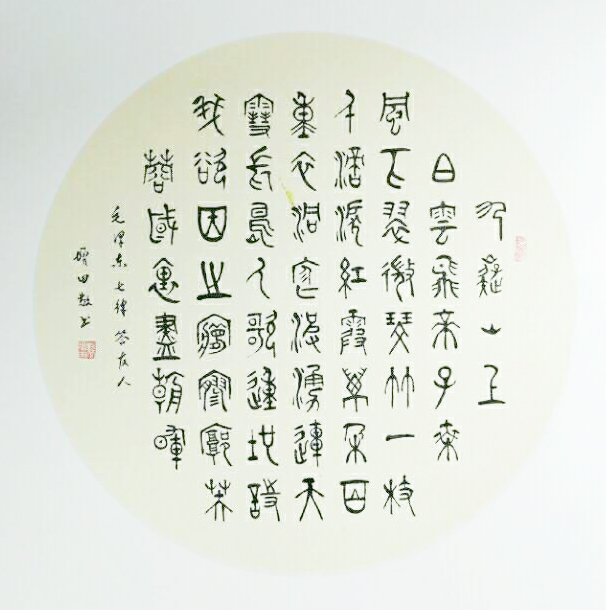 九嶷山上
白雲飛帝子乘
風下翠微斑竹一枝
千滴淚紅霞萬朵百
重衣洞庭波湧連天
雪長島人歌動地詩
我欲因之夢寥廓芙
蓉國裏盡朝暉
毛澤東七律答友人
田敬书